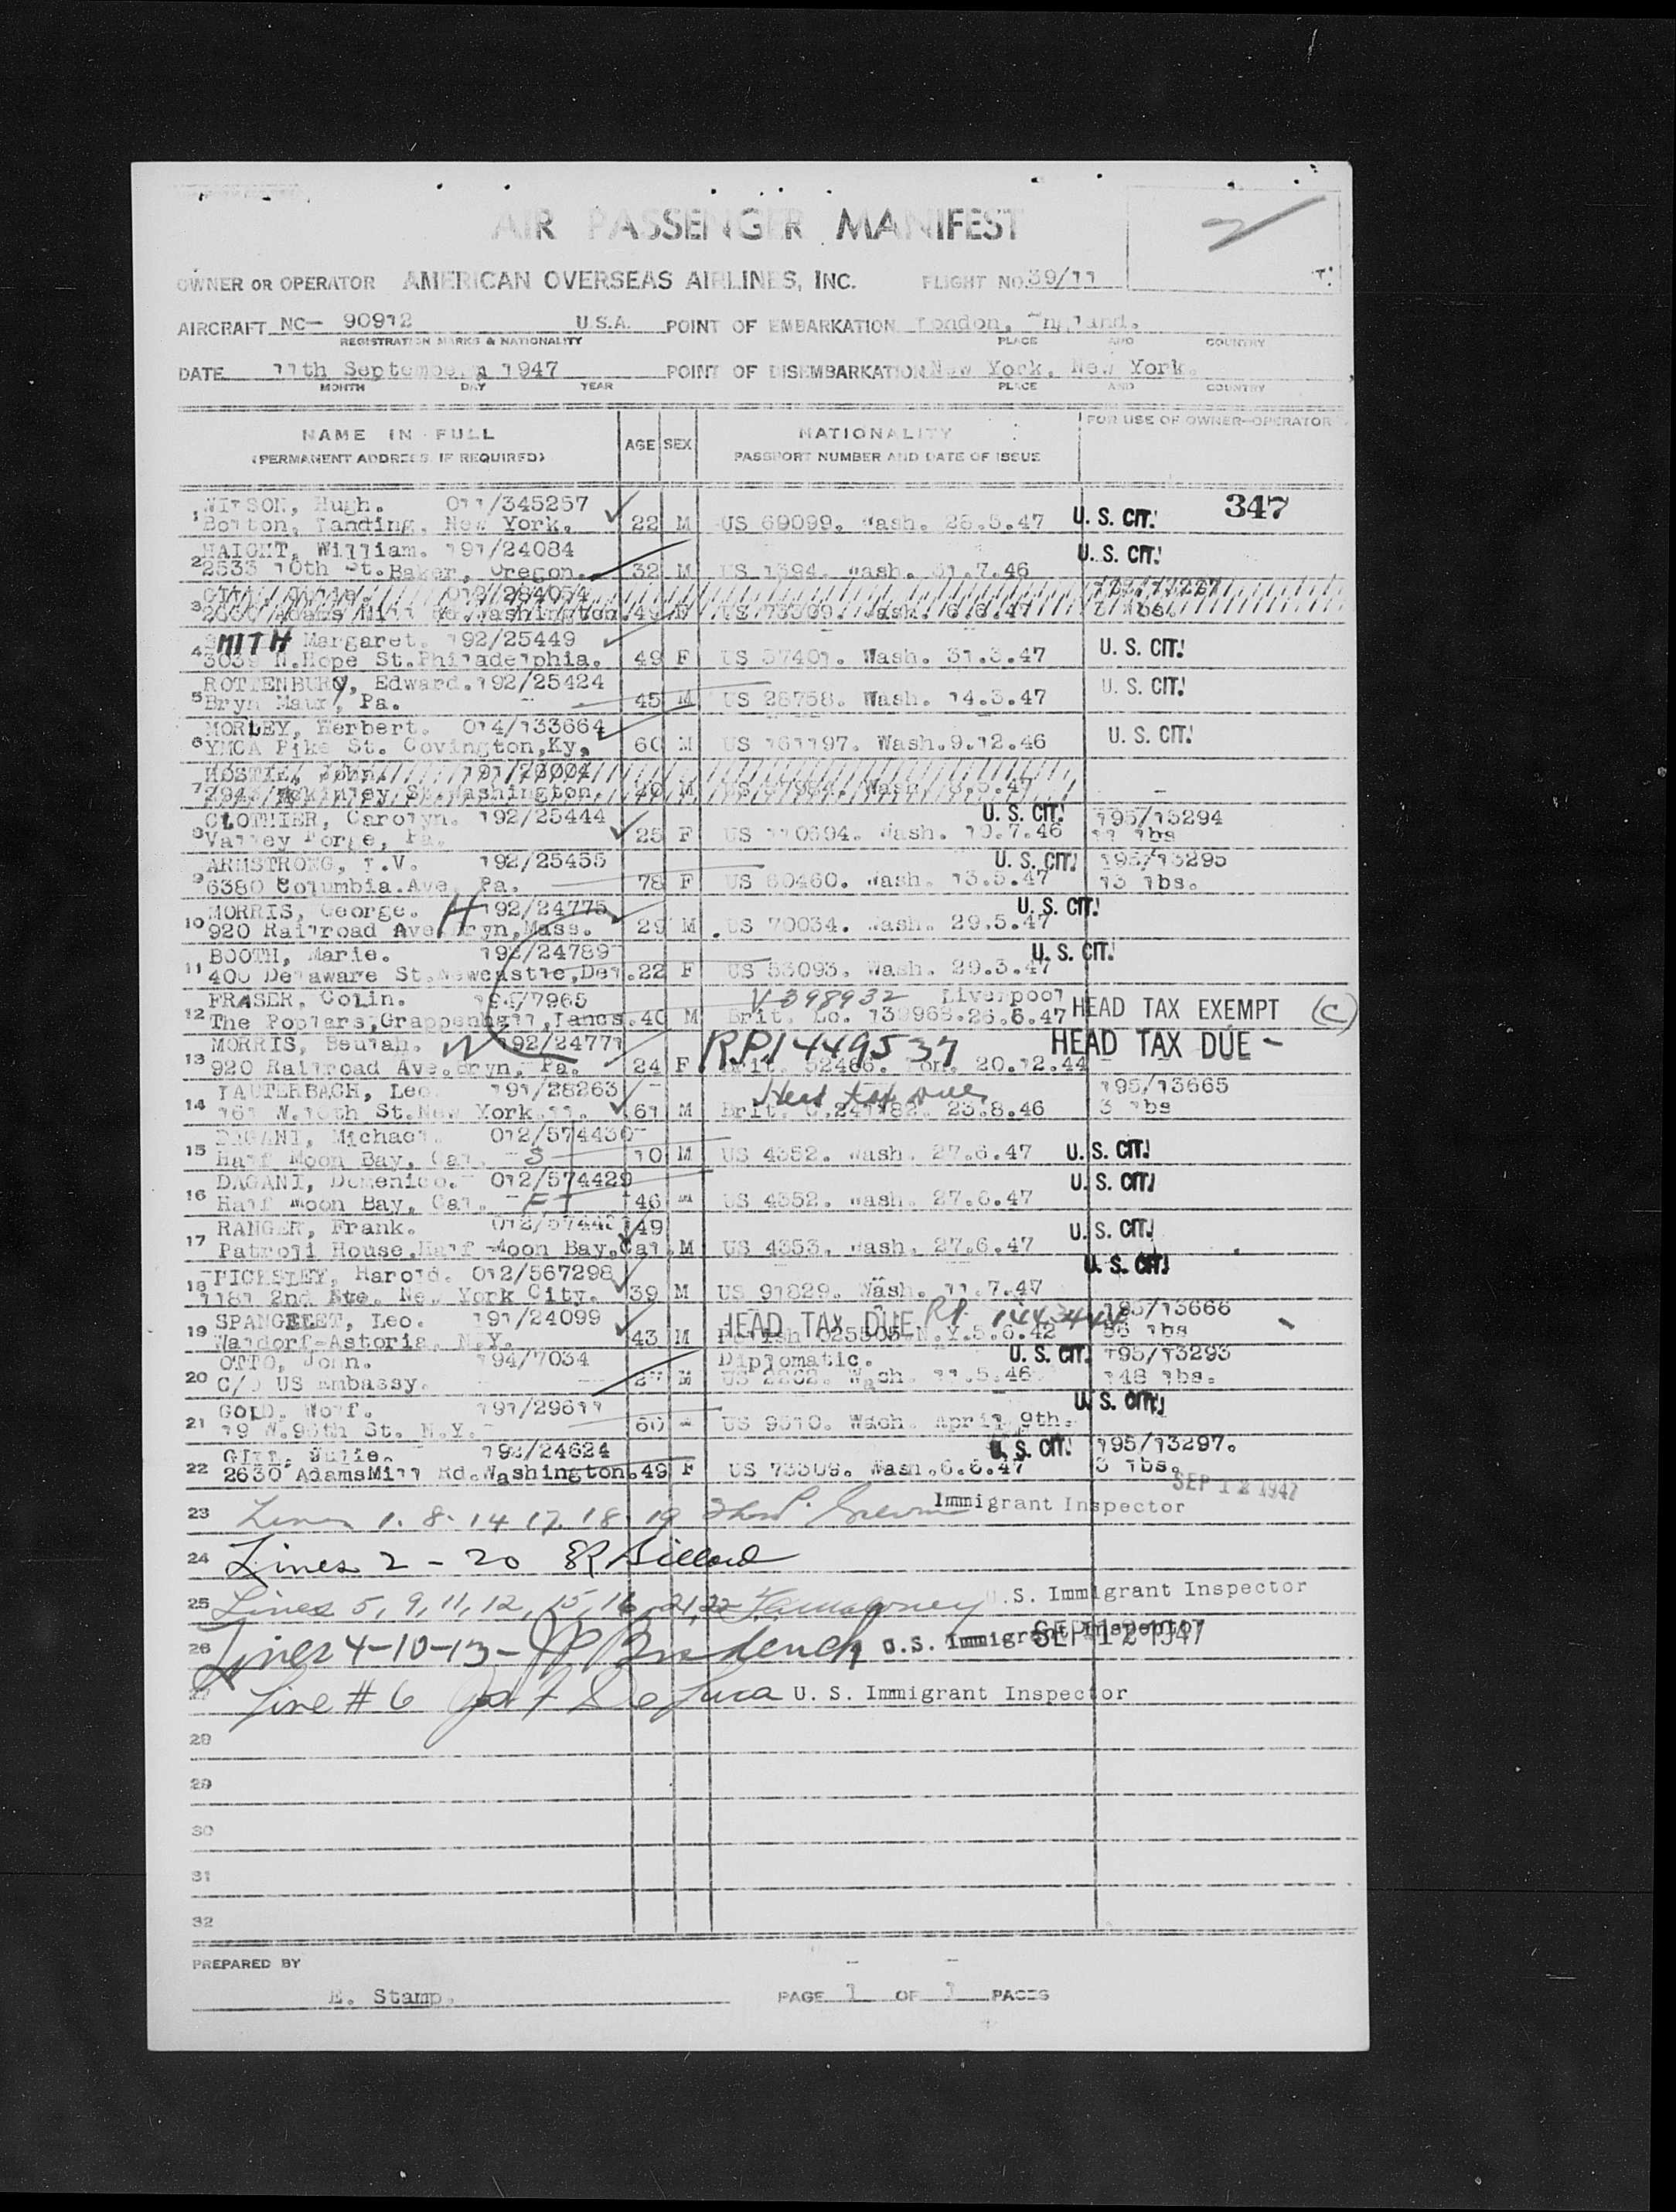 AIR PASSENGER MANIFEST
OWNER OR OPERATOR AMERICAN OVERSEAS AIRLINES, INC. FLIGHT NO. 39/11
AIRCRAFT NC- 90912 U.S.A. POINT OF EMBARKATION London, England.
REGISTRATION MARKS & NATIONALITY PLACE AND COUNTRY
DATE 11th September 1947 POINT OF DISEMBARKATION New York, New York.
MONTH DAY YEAR PLACE AND COUNTRY
NAME IN FULL AGE SEX NATIONALITY FOR USE OF OWNER-OPERATOR
(PERMANENT ADDRESS IF REQUIRED) PASSPORT NUMBER AND DATE OF ISSUE
Hugh. 011/345257 347
1 Bolton, Landing, New York. 22 M US 69099. Wash. 28.5.47 U. S. CIT.
HAIGHT, William. 191/24084 U. S. CIT.
2 2533 10th St. Baker, Oregon. 32 M US 1394. Wash. 31.7.46
3 2630 Adams Mill Rd. Washington. 49 US 73309. Wash. 6.6.47
SMITH Margaret. 192/25449
4 3039 N.Hope St.Philadelphia. 49 F US 57401. Wash. 31.3.47 U. S. CIT.
ROTTENBURY, Edward. 192/25424
5 Bryn Maur, Pa. 45 M US 28758. Wash. 14.3.47 U. S. CIT.
MORLEY, Herbert. 014/133664
6 YMCA Pike St. Covington,Ky. 60 M US 161197. Wash.9.12.46 U. S. CIT.
John. 191/
7 McKinley St. Washington. M US Wash.
CLOTHIER, Carolyn. 192/25444 U. S. CIT. 195/13294
8 Valley Forge, Pa. 25 F US 110394. Wash. 10.7.46 11 lbs
ARMSTRONG, L.V. 192/25455 U. S. CIT. 195/13295
9 6380 Columbia.Ave. Pa. 78 F US 60460. Wash. 13.5.47 13 lbs.
MORRIS, George. H 192/24775 U. S. CIT.
10 920 Railroad Ave.Bryn,Mass. 29 M US 70034. Wash. 29.5.47
BOOTH, Marie. 192/24789 U. S. CIT.
11 400 Delaware St.Newcastle,Del. 22 F US 53093. Wash. 29.3.47
FRASER, Colin. 194/7965 V 398932 Liverpool
12 The Poplars,Grappenhall,Lancs. 40 M Brit. Lo. 139968.26.6.47 HEAD TAX EXEMPT (C)
MORRIS, Beulah. W 192/24771 RP1449537 HEAD TAX DUE -
13 920 Railroad Ave.Bryn, Pa. 24 F Brit. 52466. Lon. 20.12.44
LAUTERBACH, Leo. 191/28263 Head tax due 195/13665
14 161 W.16th St.New York.11. 61 M Brit. C.241782. 23.8.46 3 lbs
DAGANI, Michael. 012/574430
15 Half Moon Bay, Cal. S 10 M US 4352. Wash. 27.6.47 U. S. CIT.
DAGANI, Domenico. 012/574429 U. S. CIT.
16 Half Moon Bay, Cal. F 46 M US 4352. Wash. 27.6.47
RANGER, Frank. 49 U. S. CIT.
17 House,Half Moon Bay,Cal. M US 4353. Wash. 27.6.47
Harold. 012/567298 U. S. CIT.
18 1181 2nd Ave. New York City. 39 M US 91829. Wash. 11.7.47
SPANGELET, Leo. 191/24099 HEAD TAX DUE 195/13666
19 Waldorf-Astoria, N.Y. 43 M Polish N.Y.5.6.42 lbs
OTTO, John. 194/7034 Diplomatic. U. S. CIT. 195/13293
20 C/O US Embassy. 27 M US 2262. Wash. 11.5.46 148 lbs.
GOLD, Wolf. 191/29611 U. S. CIT.
21 19 W.96th St. N.Y. 60 US 9510. Wash. April 9th.
GITT, Julie. 192/24624 U. S. CIT. 195/13297.
22 2630 AdamsMill Rd.Washington. 49 F US 73309. Wash.6.6.47 3 lbs.
SEP 12 1947
23 Lines 1. 8. 14 17 18. 19 Immigrant Inspector
24 Lines 2 - 20
25 Lines 5, 9, 11, 12, 15, 16, 21, 22 U.S. Immigrant Inspector
26 Lines 4-10-13- U.S. Immigrant Inspector SEP 12 1947
27 Line # 6 U. S. Immigrant Inspector
28
29
30
31
32
PREPARED BY
E. Stamp. PAGE 1 OF 1 PAGES